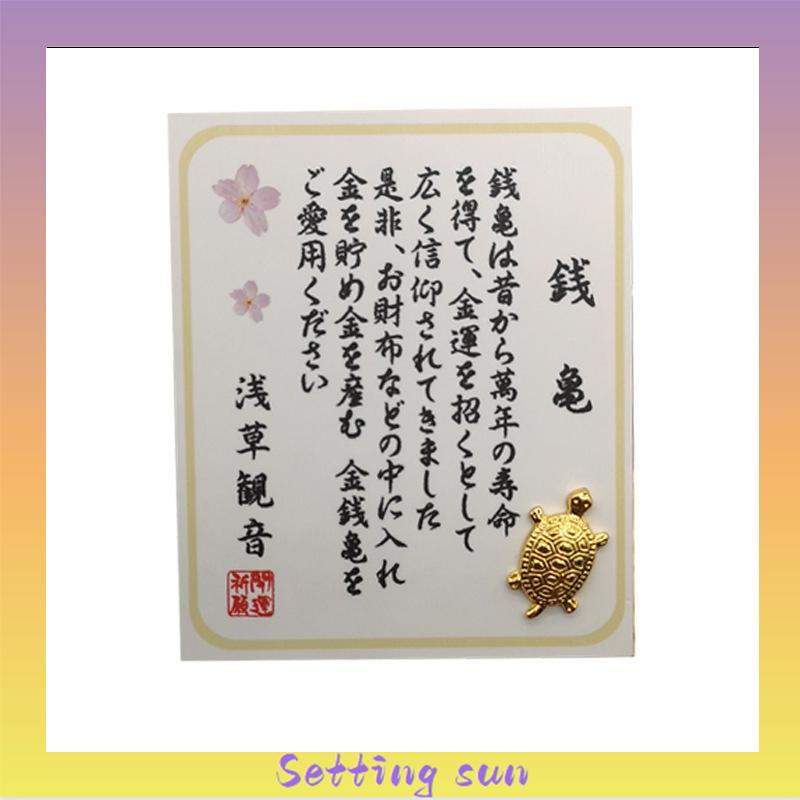 銭亀
銭亀は昔から萬年の寿命
を得て、金運を招くとして
広く信仰されてきました
是非、お財布などの中に入れ
金を貯め金を産む 金銭亀を
ご愛用ください
浅草観音
開運
祈願
Setting sun